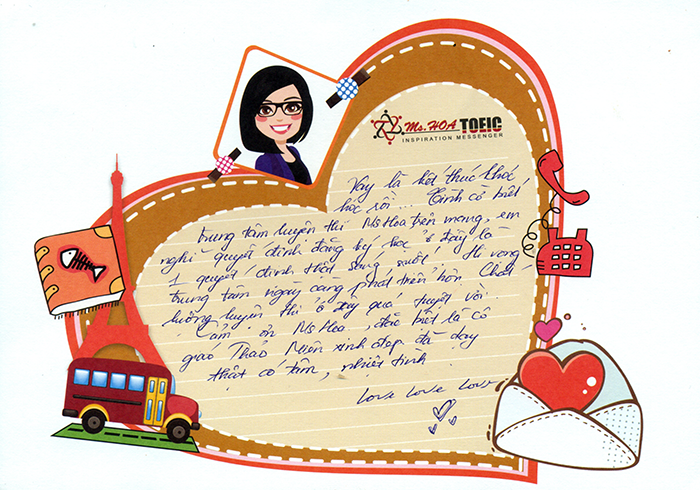 Ms. HOA TOEIC
INSPIRATION MESSENGER
Vậy là kết thúc khóc
học rồi ... Tình cờ biết
trung tâm luyện thi Ms Hoa trên mạng, em
nghĩ quyết định đăng ký học ở đây là
1 quyết định thật sáng suốt! Hi vọng
trung tâm ngày càng phát triển hơn. Chất
lượng luyện thi ở đây quá tuyệt vời.
Cảm ơn Ms Hoa, đặc biệt là cô
giáo Thảo Miên xinh đẹp đã dạy
thật có tâm, nhiệt tình.
Love Love Love